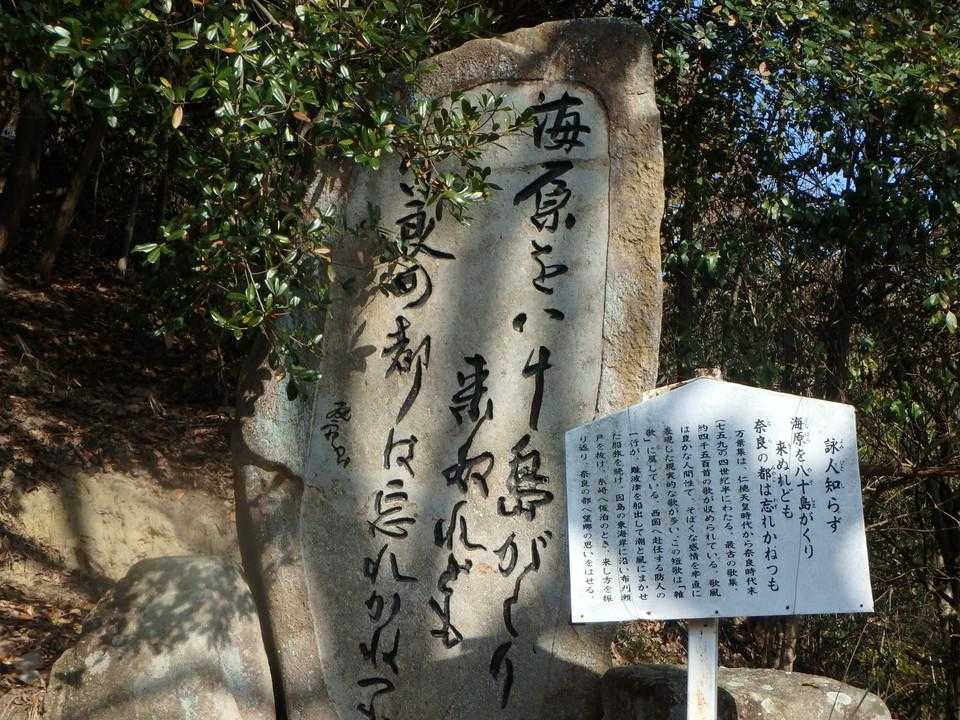 海原を八十島がくり
来ぬれども
良の都は忘れかねつ
詠人知らず
海原を八十島がくり
来ぬれども
奈良の都は忘れかねつも
万葉集は、仁徳天皇時代から奈良時代末
(七五九)の四世紀半にわたる、最古の歌集、
約四千五百首の歌が収められている。歌風
は豊かな人間性で、そぼくな感情を率直に
表現した現実的な歌が多い。この短歌は「雑
歌」に属している。西国へ赴任する防人の
一行が、難波津を船出して潮と風にまかせ
た船旅を続け、因島の東海岸に沿い布刈瀬
戸を抜け、糸崎へ仮泊のとき、来し方を振
り返り、奈良の都へ望郷の思いをはせる。